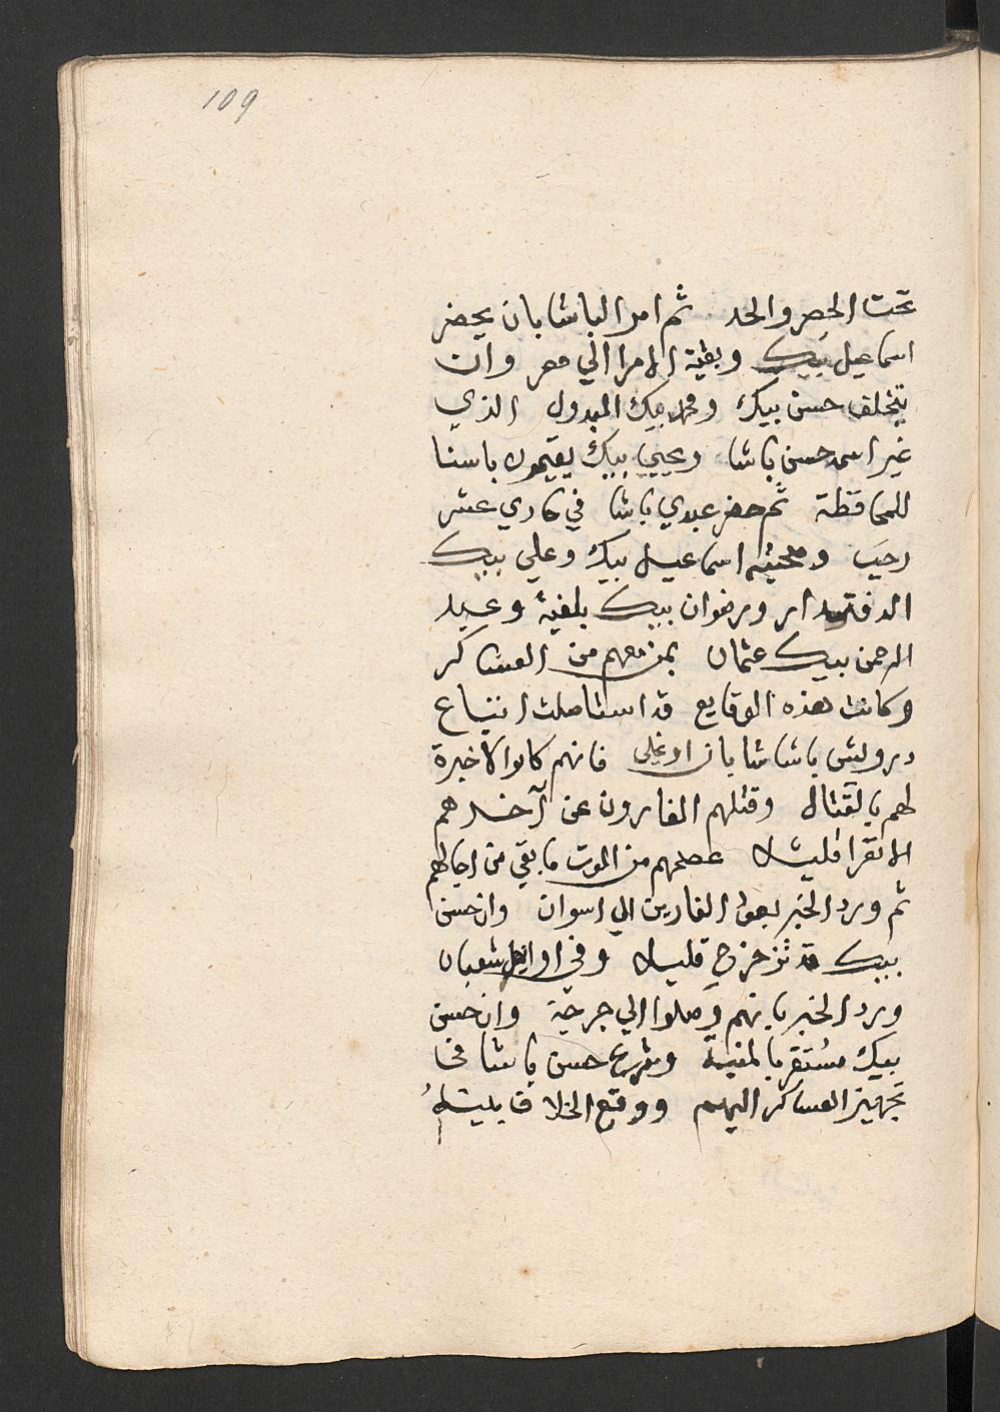 109
تحت الحصر والحد ثم امر الباشا بان يحضر
اسماعيل بيك وبقية الامرا الي مصر وان
يتخلف حسن بيك ومحمد بيك المبدول الذي
غير اسمه حسن باشا ويحيي بيك يقيمون باسنا
للمحافظة ثم حضر عبدي باشا في حادي عشر
رجب وصحبته اسماعيل بيك وعلي بيك
الدفتردار ورضوان بيك بلفية وعبد
الرحمن بيك عثمان بمن معهم من العساكر
وكانت هذه الوقايع قد استاصلت اتباع
درويش باشا شابان اوغلي فانهم كانوا لاخبرة
لهم بالقتال وقتلهم الفارون عن آخرهم
الا نفرا قليلا عصمهم من الموت ما بقي من اجالهم
ثم ورد الخبر بعود الفارين الي اسوان وان حسن
بيك قد تزحزح قليلا وفي اوايل شعبان
ورد الخبر بانهم وصلوا الي جرجة وان حسن
بيك مستقر بالمنية وشرع حسن باشا في
تجهيز العساكر اليهم ووقع الخلاف بينه